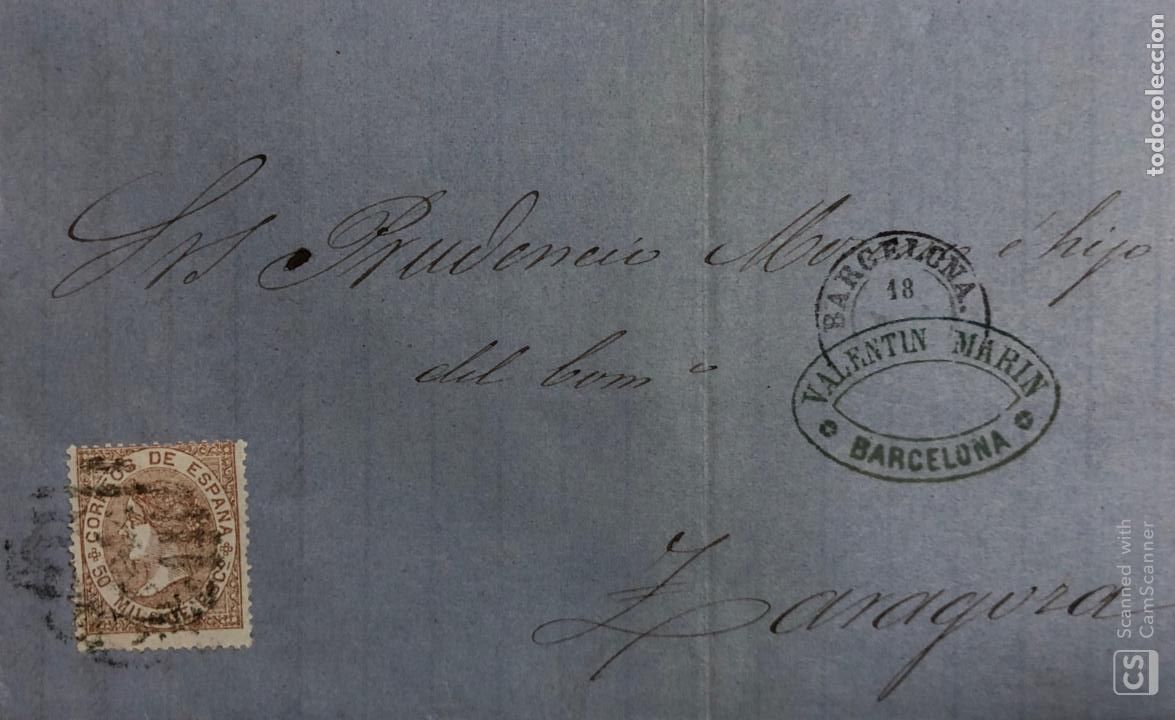 Srs Prudencio é hijo
del Comº
Zaragoza
BARCELONA.
18
VALENTIN MARIN
BARCELONA
CORREOS DE ESPAÑA
50 MILS
todocoleccion
CS Scanned with
CamScanner